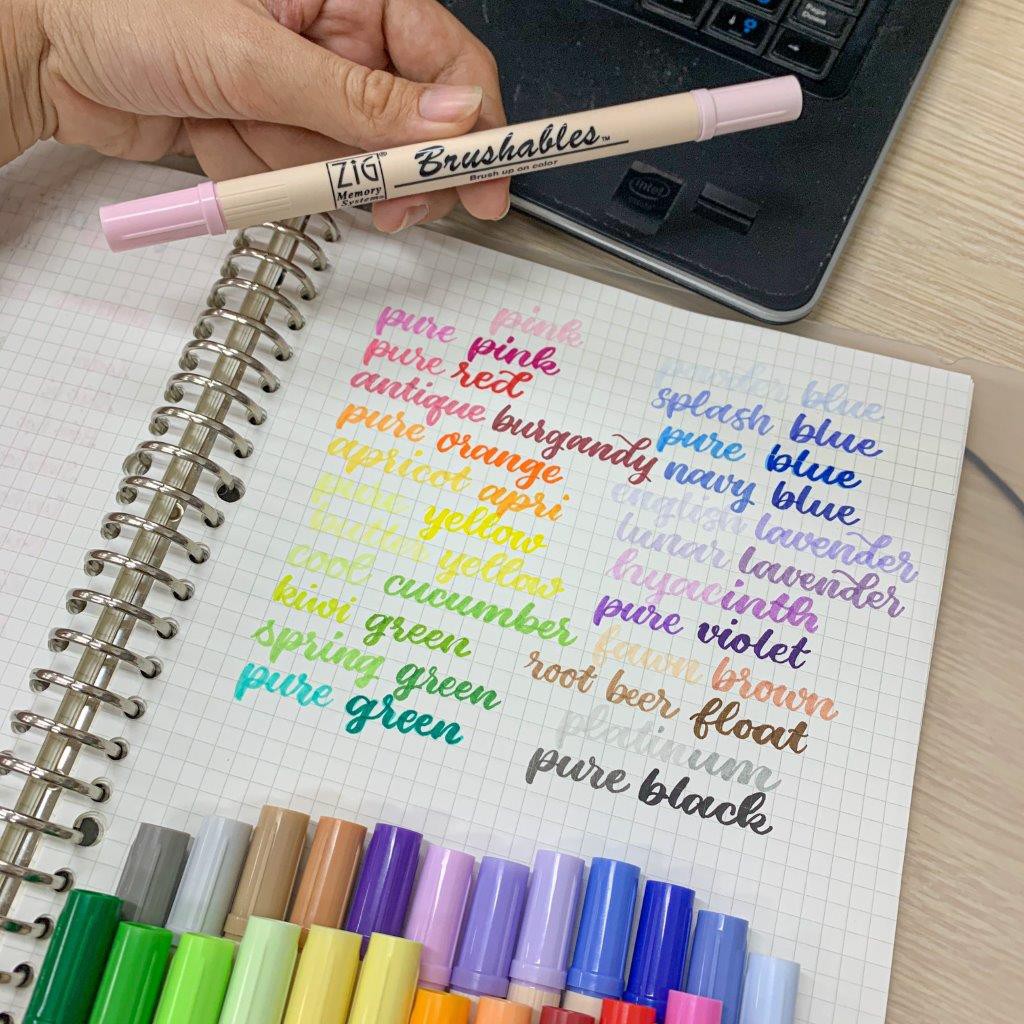 ZIG®
Memory
System®
Brushables™
Brush up on color
intel
pink
pure pink
pure red
antique burgandy
pure orange
apricot apri
pure yellow
butter yellow
cool cucumber
kiwi green
spring green
pure green
powder blue
splash blue
pure blue
navy blue
english lavender
lunar lavender
hyacinth
pure violet
fawn brown
root beer float
platinum
pure black